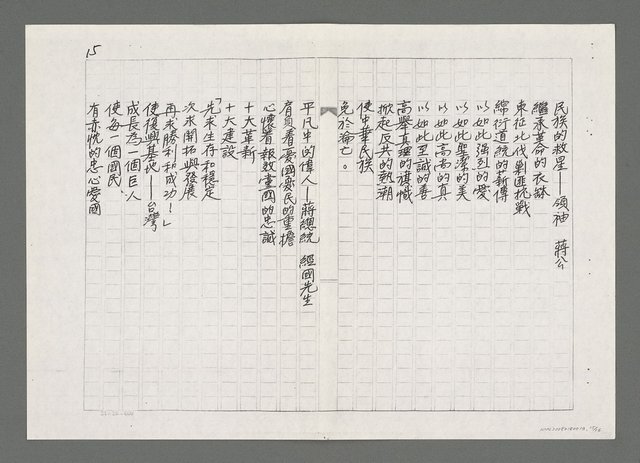 15
民族的救星——領袖 蔣公
繼承革命的衣缽
東征北伐剿匪抗戰
綿衍道統的薪傳
以如此強烈的愛
以如此聖潔的美
以如此崇高的真
以如此至誠的善
高舉真理的旗幟
掀起反共的熱潮
使中華民族
免於淪亡。
平凡中的偉人——蔣總統 經國先生
肩負着憂國鄉民的重擔
心懷着報效黨國的忠誠
十大革新
十大建設
「先求生存和穩定
次求開拓與發展
再求勝利和成功！」
使復興基地——台灣
成長為一個巨人
使每一個國民
有赤忱的忠心愛國